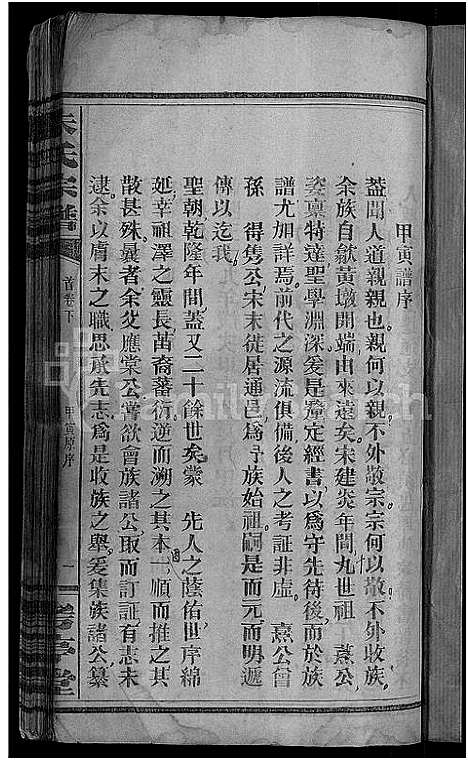 甲寅譜序
蓋聞人道親親也親何以親不外敬宗宗何以敬不外收族
余族自歙黃墩開端由來遠矣宋建炎年間九世祖　熹公
姿稟特達聖學淵深爰是釐定經書以為守先待後而於族
譜尤加詳焉前代之源流俱備後人之考証非虛　熹公曾
孫　得雋公宋末徙居通邑為予族始祖嗣是而元而明遞
傳以迄我
聖朝乾隆年間蓋又二十餘世矣蒙　先人之蔭佑世序綿
延幸祖澤之靈長苗裔蕃衍逆而溯之其本一順而推之其
散甚殊曩者余父應棠公嘗欲會族諸公取而訂証有志未
逮余以膚末之職思承先志為是收族之舉爰集族諸公纂
朱氏宗譜
首卷下
甲寅原序
一